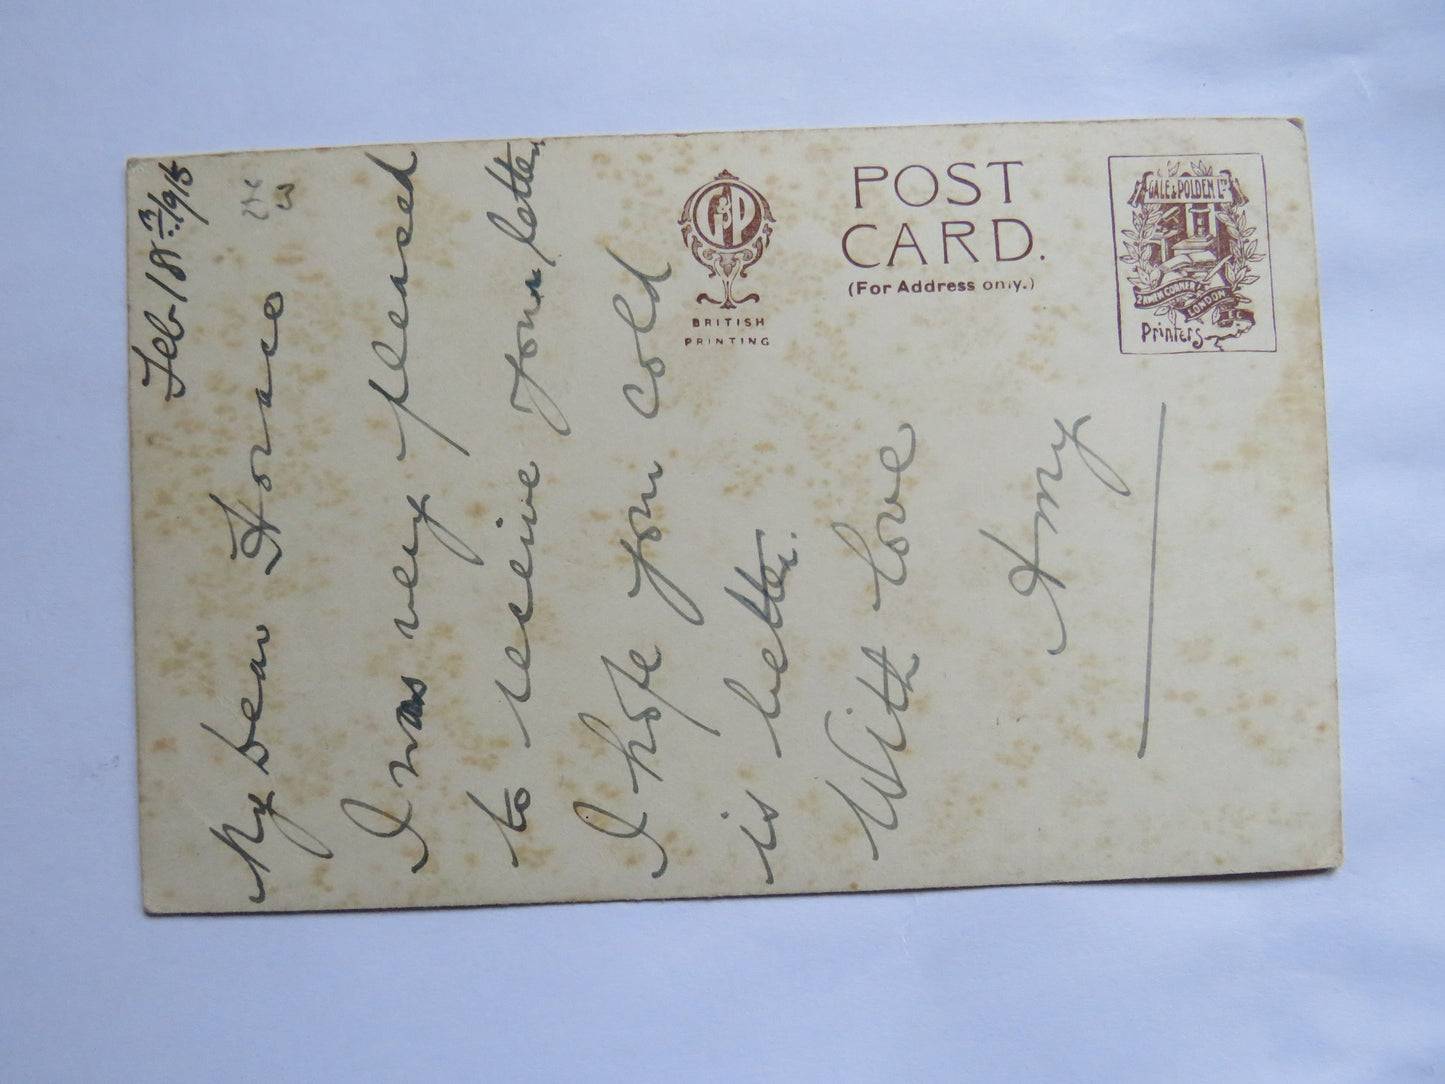 Feb 18th/1915
My dear Horace
I was very pleased
to receive your letter
I hope you cold
is better.
With love
Amy
POST
CARD.
(For Address only.)
G&P
BRITISH
PRINTING
GALE & POLDEN LTD
2 AMEN CORNER
LONDON
E.C.
Printers